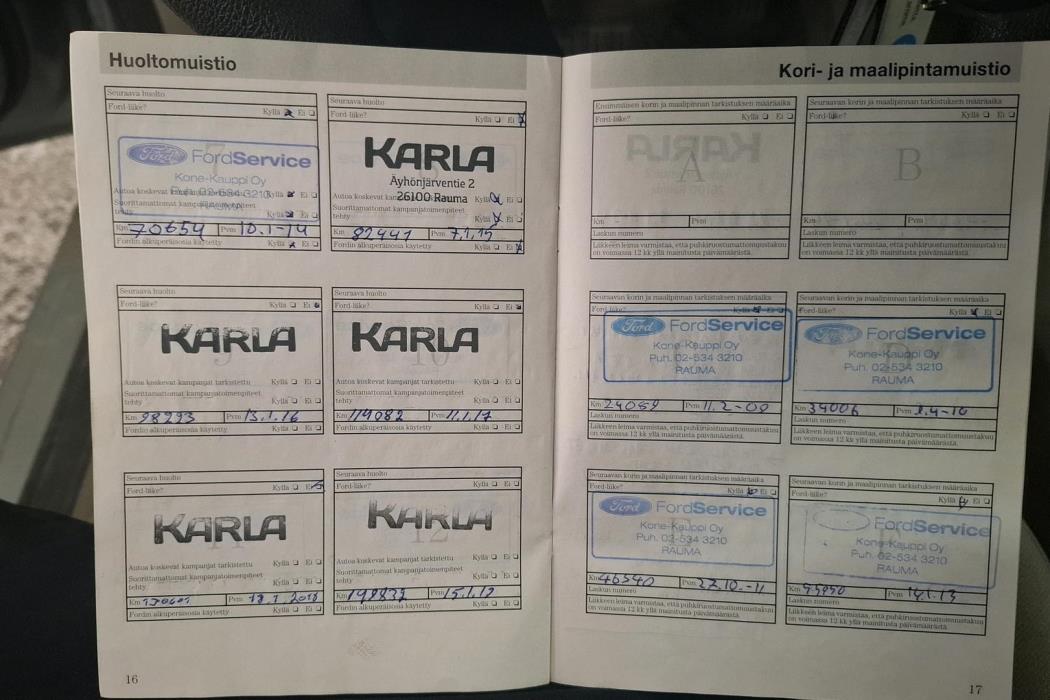 Huoltomuistio
Seuraava huolto
Ford-liike? Kyllä Ei
Ford FordService
Kone-Kauppi Oy
Puh. 02-534 3210
RAUMA
Autoa koskevat Kyllä Ei
Suorittamattomat kampanjatoimenpiteet
tehty Kyllä Ei
Km 70654 Pvm 10.1-14
Fordin alkuperäisosia käytetty Kyllä Ei
Seuraava huolto
Ford-liike? Kyllä Ei
KARLA
Äyhönjärventie 2
26100 Rauma
Autoa koskevat Kyllä Ei
Suorittamattomat kampanjatoimenpiteet
tehty Kyllä Ei
Km 82441 Pvm 7.1.15
Fordin alkuperäisosia käytetty Kyllä Ei
Seuraava huolto
Ford-liike? Kyllä Ei
KARLA
Autoa koskevat kampanjat tarkistettu Kyllä Ei
Suorittamattomat kampanjatoimenpiteet
tehty Kyllä Ei
Km 98293 Pvm 13.1.16
Fordin alkuperäisosia käytetty Kyllä Ei
Seuraava huolto
Ford-liike? Kyllä Ei
KARLA
10
Autoa koskevat kampanjat tarkistettu Kyllä Ei
Suorittamattomat kampanjatoimenpiteet
tehty Kyllä Ei
Km 119082 Pvm 11.1.17
Fordin alkuperäisosia käytetty Kyllä Ei
Seuraava huolto
Ford-liike? Kyllä Ei
KARLA
Autoa koskevat kampanjat tarkistettu Kyllä Ei
Suorittamattomat kampanjatoimenpiteet
tehty Kyllä Ei
Km Pvm 2018
Fordin alkuperäisosia käytetty Kyllä Ei
Seuraava huolto
Ford-liike? Kyllä Ei
KARLA
12
Autoa koskevat kampanjat tarkistettu Kyllä Ei
Suorittamattomat kampanjatoimenpiteet
tehty Kyllä Ei
Km Pvm
Fordin alkuperäisosia käytetty Kyllä Ei
16
Kori- ja maalipintamuistio
Ensimmäisen korin ja maalipinnan tarkistuksen määräaika
Ford-liike? Kyllä Ei
A
Km Pvm
Laskun numero
Liikkeen leima varmistaa, että puhkiruostumattomuustakuu
on voimassa 12 kk yllä mainitusta päivämäärästä.
Seuraavan korin ja maalipinnan tarkistuksen määräaika
Ford-liike? Kyllä Ei
B
Km Pvm
Laskun numero
Liikkeen leima varmistaa, että puhkiruostumattomuustakuu
on voimassa 12 kk yllä mainitusta päivämäärästä.
Seuraavan korin ja maalipinnan tarkistuksen määräaika
Ford-liike? Kyllä Ei
Ford FordService
Kone-Kauppi Oy
Puh. 02-534 3210
RAUMA
Km 24059 Pvm
Laskun numero
Liikkeen leima varmistaa, että puhkiruostumattomuustakuu
on voimassa 12 kk yllä mainitusta päivämäärästä.
Seuraavan korin ja maalipinnan tarkistuksen määräaika
Ford-liike? Kyllä Ei
Ford FordService
Kone-Kauppi Oy
Puh. 02-534 3210
RAUMA
Km 34006 Pvm
Laskun numero
Liikkeen leima varmistaa, että puhkiruostumattomuustakuu
on voimassa 12 kk yllä mainitusta päivämäärästä.
Seuraavan korin ja maalipinnan tarkistuksen määräaika
Ford-liike? Kyllä Ei
Ford FordService
Kone-Kauppi Oy
Puh. 02-534 3210
RAUMA
Km 46540 Pvm 27.10.-11
Laskun numero
Liikkeen leima varmistaa, että puhkiruostumattomuustakuu
on voimassa 12 kk yllä mainitusta päivämäärästä.
Seuraavan korin ja maalipinnan tarkistuksen määräaika
Ford-liike? Kyllä Ei
FordService
Kone-Kauppi Oy
Puh. 02-534 3210
RAUMA
Km Pvm
Laskun numero
Liikkeen leima varmistaa, että puhkiruostumattomuustakuu
on voimassa 12 kk yllä mainitusta päivämäärästä.
17